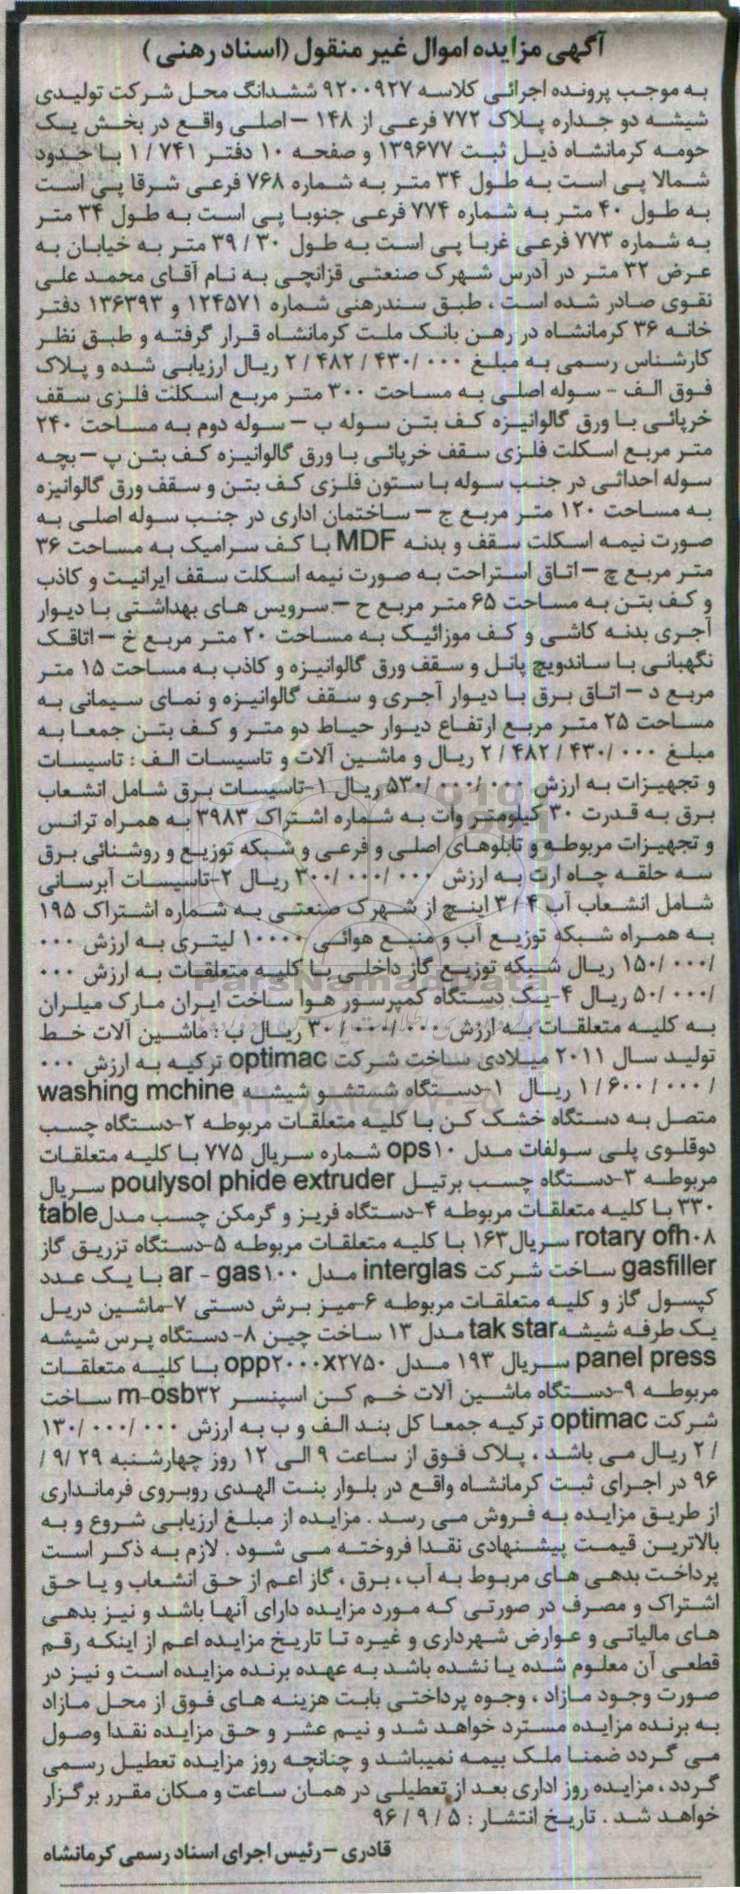 آگهی مزایده اموال غیر منقول (اسناد رهنی)
به موجب پرونده اجرائی کلاسه ۹۲۰۰۹۲۷ ششدانگ محل شرکت تولیدی
شیشه دو جداره پلاک ۷۷۲ فرعی از ۱۴۸ – اصلی واقع در بخش یک
حومه کرمانشاه ذیل ثبت ۱۳۹۶۷۷ و صفحه ۱۰ دفتر ۷۴۱ / ۱ با حدود
شمالا پی است به طول ۳۴ متر به شماره ۷۶۸ فرعی شرقا پی است
به طول ۴۰ متر به شماره ۷۷۴ فرعی جنوبا پی است به طول ۳۴ متر
به شماره ۷۷۳ فرعی غربا پی است به طول ۳۰ / ۳۹ متر به خیابان به
عرض ۳۲ متر در آدرس شهرک صنعتی قزانچی به نام آقای محمد علی
نقوی صادر شده است ، طبق سندرهنی شماره ۱۲۴۵۷۱ و ۱۳۶۳۹۳ دفتر
خانه ۳۶ کرمانشاه در رهن بانک ملت کرمانشاه قرار گرفته و طبق نظر
کارشناس رسمی به مبلغ ۰۰۰ /۴۳۰ / ۴۸۲ / ۲ ریال ارزیابی شده و پلاک
فوق الف - سوله اصلی به مساحت ۳۰۰ متر مربع اسکلت فلزی سقف
خرپائی با ورق گالوانیزه کف بتن سوله ب – سوله دوم به مساحت ۲۴۰
متر مربع اسکلت فلزی سقف خرپائی با ورق گالوانیزه کف بتن پ – بچه
سوله احداثی در جنب سوله با ستون فلزی کف بتن و سقف ورق گالوانیزه
به مساحت ۱۲۰ متر مربع ج – ساختمان اداری در جنب سوله اصلی به
صورت نیمه اسکلت سقف و بدنه MDF با کف سرامیک به مساحت ۳۶
متر مربع چ – اتاق استراحت به صورت نیمه اسکلت سقف ایرانیت و کاذب
و کف بتن به مساحت ۶۵ متر مربع ح – سرویس های بهداشتی با دیوار
آجری بدنه کاشی و کف موزائیک به مساحت ۲۰ متر مربع خ – اتاقک
نگهبانی با ساندویچ پانل و سقف ورق گالوانیزه و کاذب به مساحت ۱۵ متر
مربع د – اتاق برق با دیوار آجری و سقف گالوانیزه و نمای سیمانی به
مساحت ۲۵ متر مربع ارتفاع دیوار حیاط دو متر و کف بتن جمعا به
مبلغ ۰۰۰ /۴۳۰ / ۴۸۲ / ۲ ریال و ماشین آلات و تاسیسات الف : تاسیسات
و تجهیزات به ارزش ۰۰۰ /۰۰۰ /۵۳۰ ریال ۱-تاسیسات برق شامل انشعاب
برق به قدرت ۳۰ کیلومتر وات به شماره اشتراک ۳۹۸۳ به همراه ترانس
و تجهیزات مربوطه و تابلوهای اصلی و فرعی و شبکه توزیع و روشنائی برق
سه حلقه چاه ارت به ارزش ۰۰۰ /۰۰۰ /۳۰۰ ریال ۲-تاسیسات آبرسانی
شامل انشعاب آب ۴ / ۳ اینچ از شهرک صنعتی به شماره اشتراک ۱۹۵
به همراه شبکه توزیع آب و منبع هوائی ۱۰۰۰۰ لیتری به ارزش ۰۰۰
/۰۰۰ /۱۵۰ ریال شبکه توزیع گاز داخلی با کلیه متعلقات به ارزش ۰۰۰
/۰۰۰ /۵۰ ریال ۴-یک دستگاه کمپرسور هوا ساخت ایران مارک میلران
به کلیه متعلقات به ارزش ۰۰۰ /۰۰۰ /۳۰ ریال ب : ماشین آلات خط
تولید سال ۲۰۱۱ میلادی ساخت شرکت optimac ترکیه به ارزش ۰۰۰
/ ۰۰۰ / ۶۰۰ / ۱ ریال ۱-دستگاه شستشو شیشه washing mchine
متصل به دستگاه خشک کن با کلیه متعلقات مربوطه ۲-دستگاه چسب
دوقلوی پلی سولفات مدل ops۱۰ شماره سریال ۷۷۵ با کلیه متعلقات
مربوطه ۳-دستگاه چسب برتیل poulysol phide extruder سریال
۳۳۰ با کلیه متعلقات مربوطه ۴-دستگاه فریز و گرمکن چسب مدل table
rotary ofh۰۸ سریال ۱۶۳ با کلیه متعلقات مربوطه ۵-دستگاه تزریق گاز
gasfiller ساخت شرکت interglas مدل ar - gas۱۰۰ با یک عدد
کپسول گاز و کلیه متعلقات مربوطه ۶-میز برش دستی ۷-ماشین دریل
یک طرفه شیشه tak star مدل ۱۳ ساخت چین ۸- دستگاه پرس شیشه
panel press سریال ۱۹۳ مدل opp۲۰۰۰x۲۷۵۰ با کلیه متعلقات
مربوطه ۹-دستگاه ماشین آلات خم کن اسپنسر m-osb۳۲ ساخت
شرکت optimac ترکیه جمعا کل بند الف و ب به ارزش ۰۰۰ /۰۰۰ /۱۳۰
/ ۲ ریال می باشد ، پلاک فوق از ساعت ۹ الی ۱۲ روز چهارشنبه ۲۹ /۹ /
۹۶ در اجرای ثبت کرمانشاه واقع در بلوار بنت الهدی روبروی فرمانداری
از طریق مزایده به فروش می رسد . مزایده از مبلغ ارزیابی شروع و به
بالاترین قیمت پیشنهادی نقدا فروخته می شود . لازم به ذکر است
پرداخت بدهی های مربوط به آب ، برق ، گاز اعم از حق انشعاب و یا حق
اشتراک و مصرف در صورتی که مورد مزایده دارای آنها باشد و نیز بدهی
های مالیاتی و عوارض شهرداری و غیره تا تاریخ مزایده اعم از اینکه رقم
قطعی آن معلوم شده یا نشده باشد به عهده برنده مزایده است و نیز در
صورت وجود مازاد ، وجوه پرداختی بابت هزینه های فوق از محل مازاد
به برنده مزایده مسترد خواهد شد و نیم عشر و حق مزایده نقدا وصول
می گردد ضمنا ملک بیمه نمیباشد و چنانچه روز مزایده تعطیل رسمی
گردد ، مزایده روز اداری بعد از تعطیلی در همان ساعت و مکان مقرر برگزار
خواهد شد . تاریخ انتشار : ۵ / ۹ / ۹۶
قادری – رئیس اجرای اسناد رسمی کرمانشاه
ParsNamadData